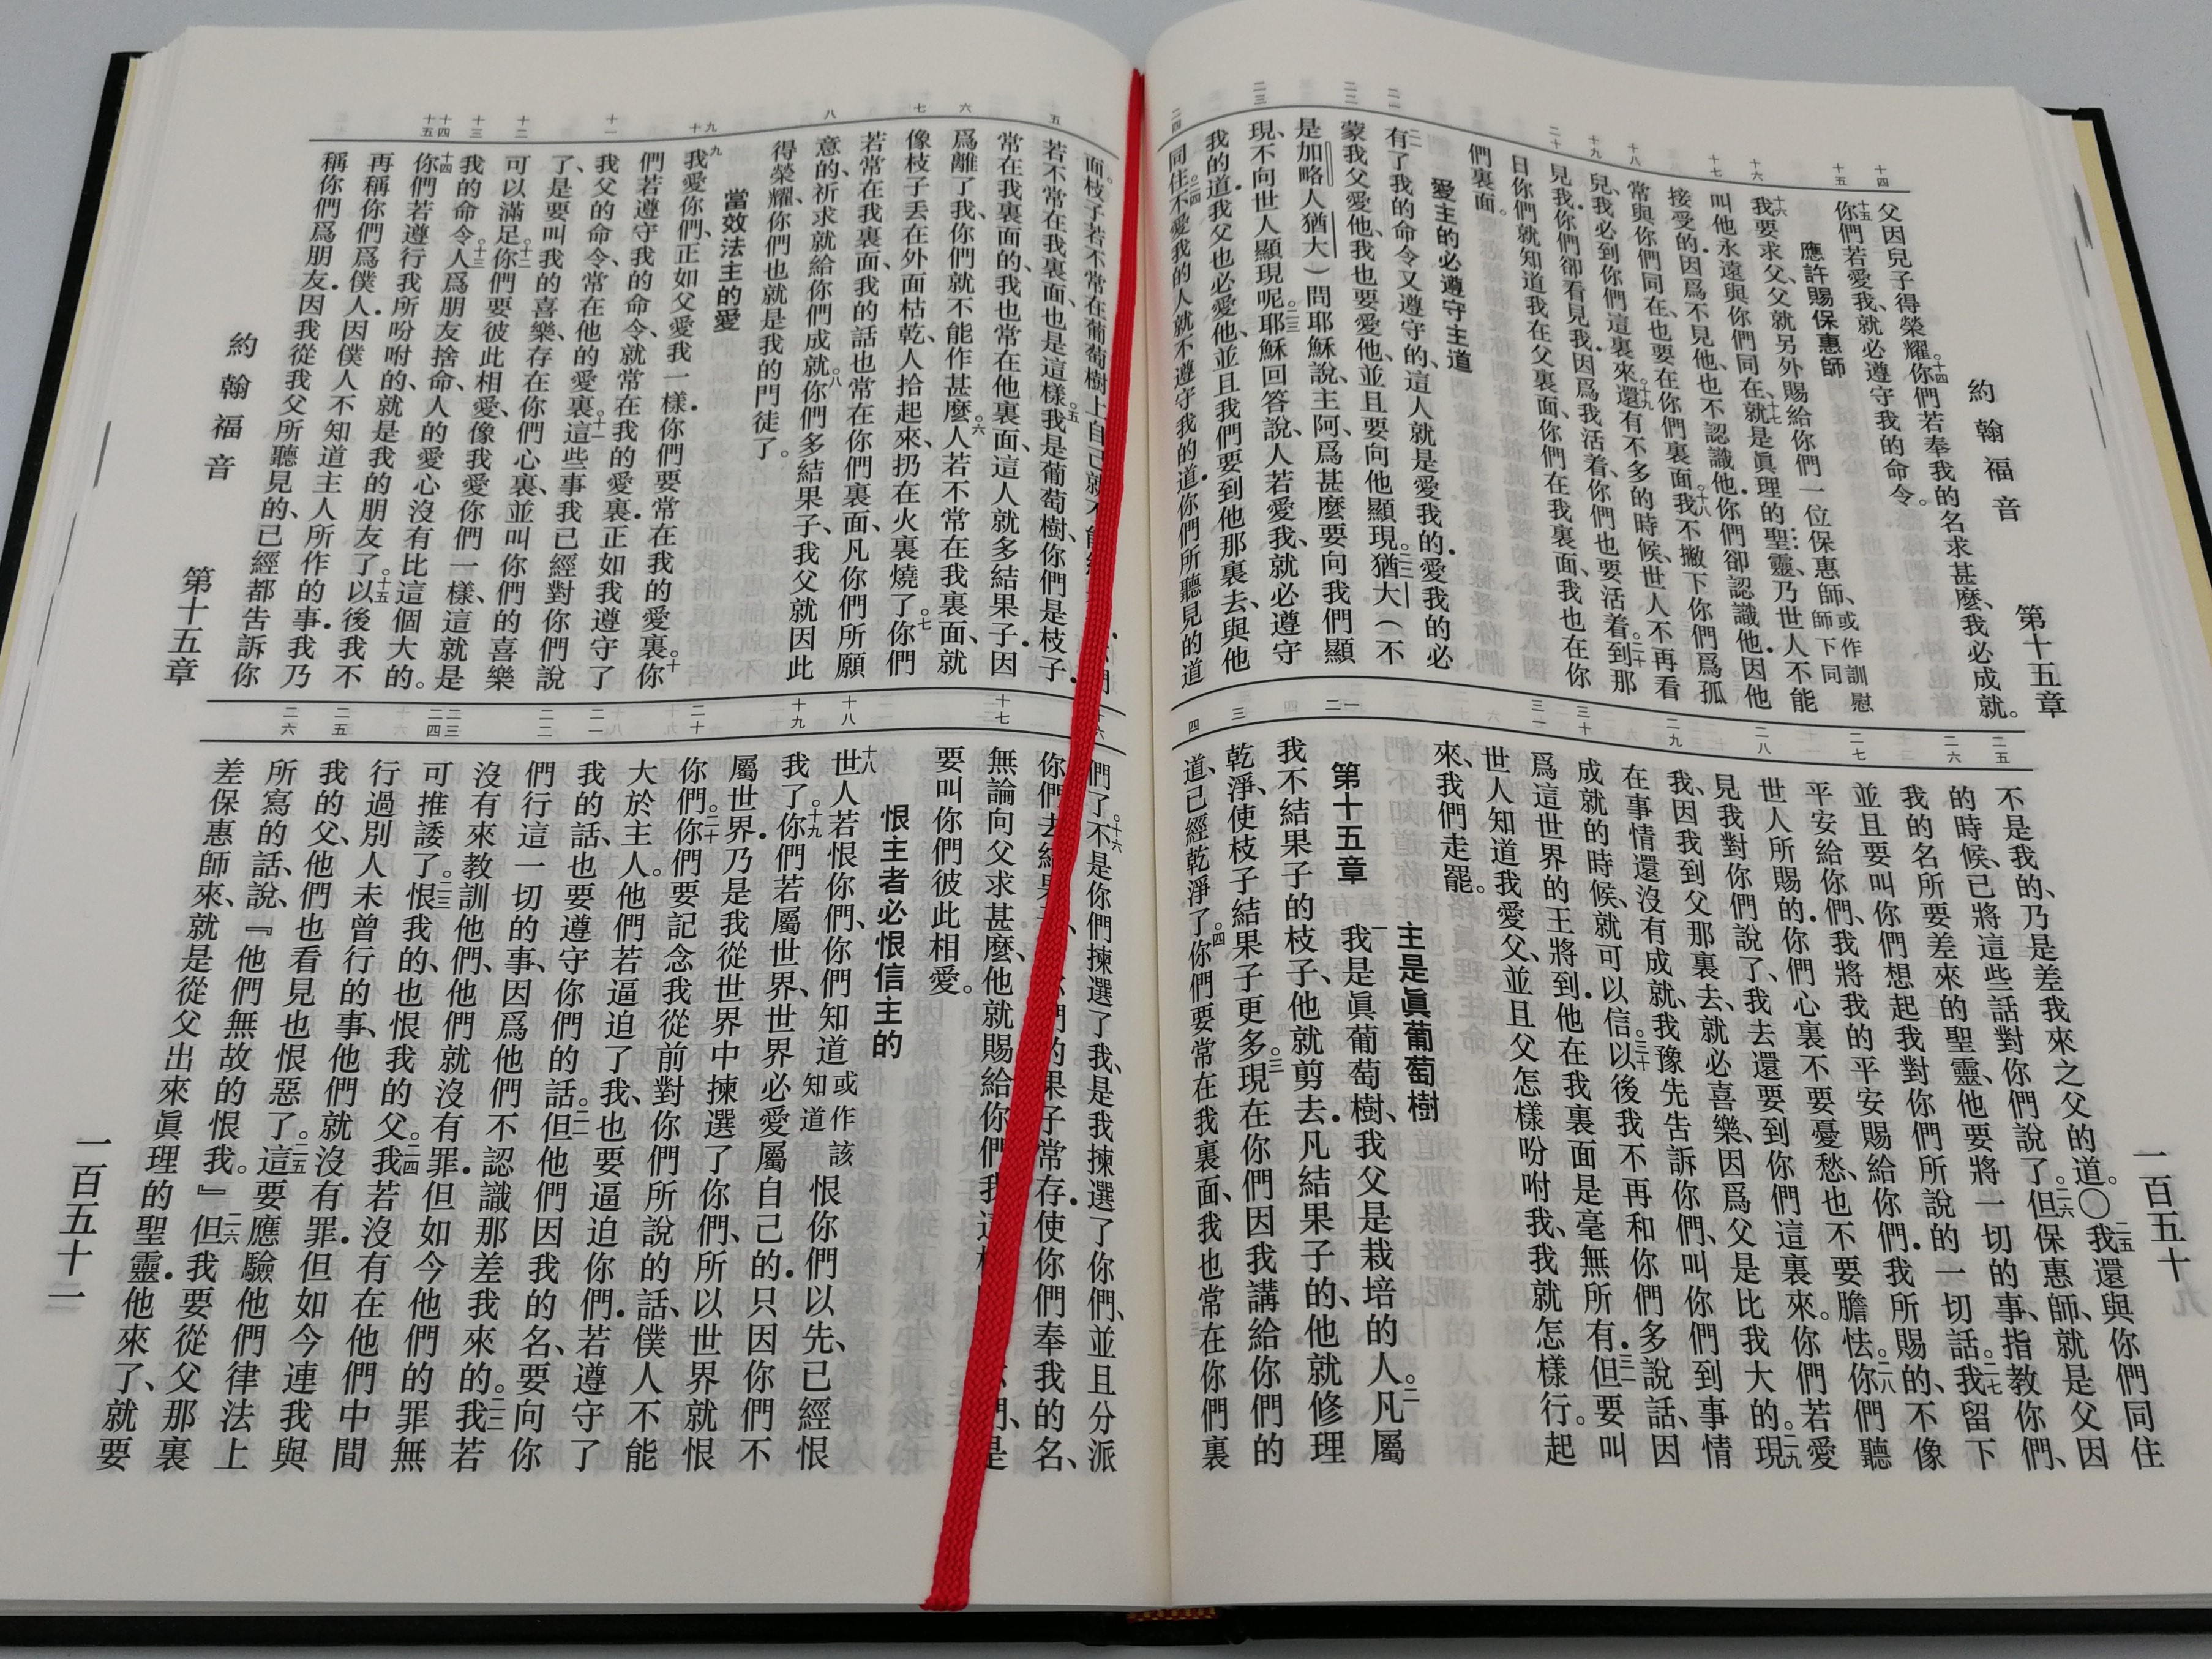 約翰福音
第十五章
一百五十
十四
十五
十六
十七
十八
十九
二十
二一
二二
二三
二四
父因兒子得榮耀。十四你們若奉我的名求甚麼、我必成就。
十五你們若愛我、就必遵守我的命令。
應許賜保惠師
十六我要求父、父就另外賜給你們一位保惠師、或作訓慰師下同
叫他永遠與你們同在、十七就是眞理的聖靈、乃世人不能
接受的．因爲不見他、也不認識他．你們卻認識他．因他
常與你們同在、也要在你們裏面。十八我不撇下你們爲孤
兒、我必到你們這裏來。十九還有不多的時候、世人不再看
見我．你們卻看見我．因爲我活着、你們也要活着。二十到那
日你們就知道我在父裏面、你們在我裏面、我也在你
們裏面。
愛主的必遵守主道
二一有了我的命令又遵守的、這人就是愛我的．愛我的必
蒙我父愛他、我也要愛他、並且要向他顯現。二二猶大（不
是加略人猶大）問耶穌說、主阿、爲甚麼要向我們顯
現、不向世人顯現呢。二三耶穌回答說、人若愛我、就必遵守
我的道．我父也必愛他、並且我們要到他那裏去、與他
同住。二四不愛我的人就不遵守我的道．你們所聽見的道
二五
二六
二七
二八
二九
三十
三一
一
二
三
四
不是我的、乃是差我來之父的道。〇二五我還與你們同住
的時候、已將這些話對你們說了。二六但保惠師、就是父因
我的名所要差來的聖靈、他要將一切的事、指教你們、
並且要叫你們想起我對你們所說的一切話。二七我留下
平安給你們、我將我的平安賜給你們．我所賜的、不像
世人所賜的．你們心裏不要憂愁、也不要膽怯。二八你們聽
見我對你們說了、我去還要到你們這裏來。你們若愛
我、因我到父那裏去、就必喜樂、因爲父是比我大的。二九現
在事情還沒有成就、我豫先吿訴你們、叫你們到事情
成就的時候、就可以信。三十以後我不再和你們多說話、因
爲這世界的王將到．他在我裏面是毫無所有．三一但要叫
世人知道我愛父、並且父怎樣吩咐我、我就怎樣行。起
來、我們走罷。
主是眞葡萄樹
第十五章
一我是眞葡萄樹、我父是栽培的人。二凡屬
我不結果子的枝子、他就剪去．凡結果子的、他就修理
乾淨、使枝子結果子更多。三現在你們因我講給你們的
道、已經乾淨了。四你們要常在我裏面、我也常在你們裏
五
六
七
八
九
十
十一
十二
十三
十四
十五
面。枝子若不常在葡萄樹上自己就不
若不常在我裏面、也是這樣。五我是葡萄樹、你們是枝子．
常在我裏面的、我也常在他裏面、這人就多結果子．因
爲離了我、你們就不能作甚麼。六人若不常在我裏面、就
像枝子丟在外面枯乾、人拾起來、扔在火裏燒了。七你們
若常在我裏面、我的話也常在你們裏面、凡你們所願
意的、祈求就給你們成就。八你們多結果子、我父就因此
得榮耀、你們也就是我的門徒了。
當效法主的愛
九我愛你們、正如父愛我一樣．你們要常在我的愛裏。十你
們若遵守我的命令、就常在我的愛裏．正如我遵守了
我父的命令、常在他的愛裏。十一這些事我已經對你們說
了、是要叫我的喜樂、存在你們心裏、並叫你們的喜樂
可以滿足。十二你們要彼此相愛、像我愛你們一樣、這就是
我的命令。十三人爲朋友捨命、人的愛心沒有比這個大的。
十四你們若遵行我所吩咐的、就是我的朋友了。十五以後我不
再稱你們爲僕人．因僕人不知道主人所作的事．我乃
稱你們爲朋友．因我從我父所聽見的、已經都吿訴你
十六
十七
十八
十九
二十
二一
二二
二三
二四
二五
二六
們了。十六不是你們揀選了我、是我揀選了你們、並且分派
你們去 果子常存．使你們奉我的名、
無論向父求甚麼、他就賜給你們。我這 是
要叫你們彼此相愛。
恨主者必恨信主的
十八世人若恨你們、你們知道或作該知道恨你們以先、已經恨
我了。十九你們若屬世界、世界必愛屬自己的．只因你們不
屬世界．乃是我從世界中揀選了你們、所以世界就恨
你們。二十你們要記念我從前對你們所說的話、僕人不能
大於主人。他們若逼迫了我、也要逼迫你們．若遵守了
我的話、也要遵守你們的話。二一但他們因我的名、要向你
們行這一切的事、因爲他們不認識那差我來的。二二我若
沒有來敎訓他們、他們就沒有罪．但如今他們的罪無
可推諉了。二三恨我的、也恨我的父。二四我若沒有在他們中間
行過別人未曾行的事、他們就沒有罪．但如今連我與
我的父、他們也看見也恨惡了。二五這要應驗他們律法上
所寫的話、說、『他們無故的恨我。』二六但我要從父那裏
差保惠師來、就是從父出來眞理的聖靈．他來了、就要
約翰福音
第十五章
一百五十一